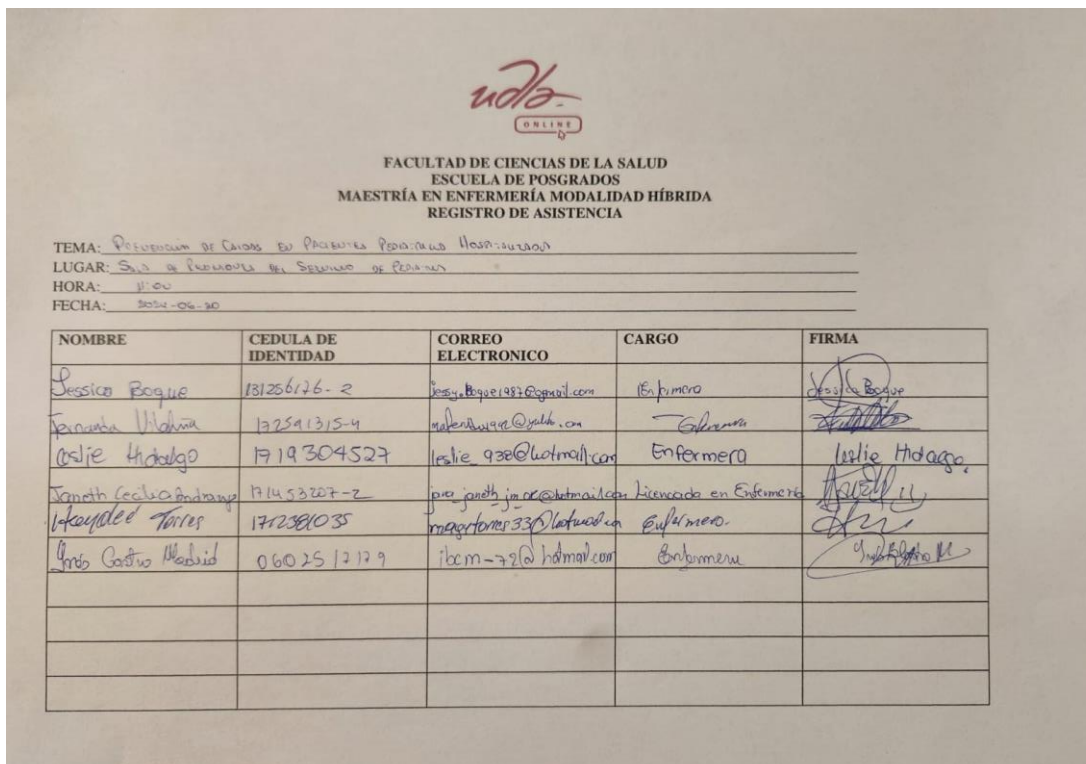 udla-
ONLINE
FACULTAD DE CIENCIAS DE LA SALUD
ESCUELA DE POSGRADOS
MAESTRÍA EN ENFERMERÍA MODALIDAD HÍBRIDA
REGISTRO DE ASISTENCIA
TEMA: Prevención de Caidas en Pacientes Pediatricos Hospitalizados
LUGAR: Sala de del Servicio de Pediatria
HORA: 11:00
FECHA: 2024-06-20
NOMBRE CEDULA DE IDENTIDAD CORREO ELECTRONICO CARGO FIRMA
Jessica Boque 131256126-2 jessy.boque1987@gmail.com Enfermera Jessica Boque
Fernanda 172591315-4 Enfermera
Leslie Hidalgo 1719304527 leslie_938@hotmail.com Enfermera Leslie Hidalgo
Janeth Cecilia 171453207-2 Licenciada en Enfermería
Haydee Torres Enfermera
Castro Madrid ibcm-72@hotmail.com Enfermera